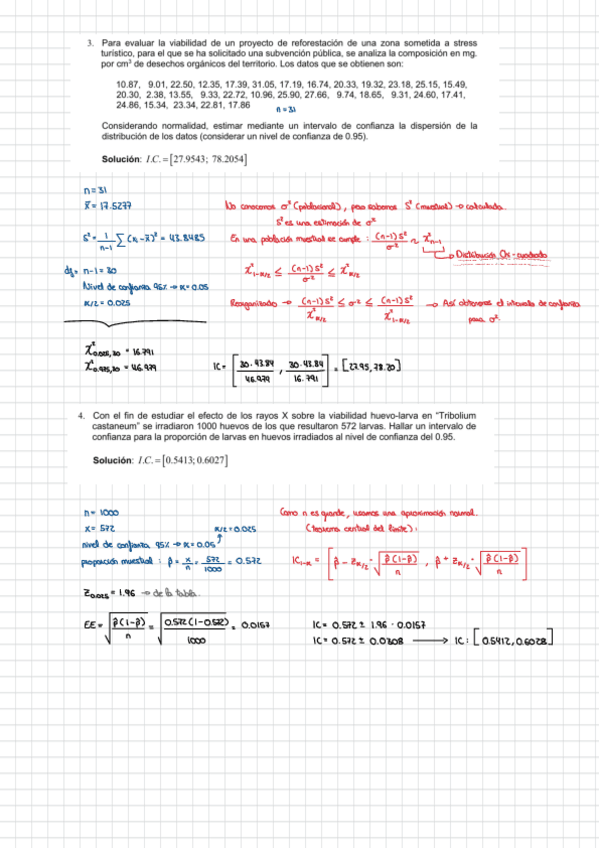 3. Para evaluar la viabilidad de un proyecto de reforestación de una zona sometida a stress
turístico, para el que se ha solicitado una subvención pública, se analiza la composición en mg.
por cm³ de desechos orgánicos del territorio. Los datos que se obtienen son:
10.87, 9.01, 22.50, 12.35, 17.39, 31.05, 17.19, 16.74, 20.33, 19.32, 23.18, 25.15, 15.49,
20.30, 2.38, 13.55, 9.33, 22.72, 10.96, 25.90, 27.66, 9.74, 18.65, 9.31, 24.60, 17.41,
24.86, 15.34, 23.34, 22.81, 17.86
n = 31
Considerando normalidad, estimar mediante un intervalo de confianza la dispersión de la
distribución de los datos (considerar un nivel de confianza de 0.95).
Solución: I.C. = [27.9543; 78.2054]
n = 31
x̄ = 17.5277
No conocemos σ² (poblacional), pero sabemos S² (muestral) → calculada.
S² es una estimación de σ²
S² = 1/(n-1) ∑(xᵢ - x̄)² = 43.8485
En una población muestral se cumple : (n-1)S²/σ² ~ χ²ₙ₋₁
→ Distribución Chi-cuadrado
df = n-1 = 30
χ²₁₋α/₂ ≤ (n-1)S²/σ² ≤ χ²α/₂
Nivel de confianza 95% → α = 0.05
α/2 = 0.025
Reorganizado → (n-1)S²/χ²α/₂ ≤ σ² ≤ (n-1)S²/χ²₁₋α/₂ → Así obtenemos el intervalo de confianza
para σ².
χ²0.025,30 = 16.791
χ²0.975,30 = 46.979
IC = [30·43.84/46.979 , 30·43.84/16.791] = [27.95, 78.20]
4. Con el fin de estudiar el efecto de los rayos X sobre la viabilidad huevo-larva en “Tribolium
castaneum” se irradiaron 1000 huevos de los que resultaron 572 larvas. Hallar un intervalo de
confianza para la proporción de larvas en huevos irradiados al nivel de confianza del 0.95.
Solución: I.C. = [0.5413; 0.6027]
n = 1000
Como n es grande, usamos una aproximación normal.
x = 572
α/2 = 0.025
(teorema central del límite):
nivel de confianza 95% → α = 0.05
proporción muestral : p̂ = x/n = 572/1000 = 0.572
IC₁₋α = [p̂ - zα/₂ · √(p̂(1-p̂)/n) , p̂ + zα/₂ · √(p̂(1-p̂)/n)]
Z0.025 = 1.96 → de la tabla.
EE = √(p̂(1-p̂)/n) = √(0.572(1-0.572)/1000) = 0.0157
IC = 0.572 ± 1.96 · 0.0157
IC = 0.572 ± 0.0308 → IC : [0.5412, 0.6028]